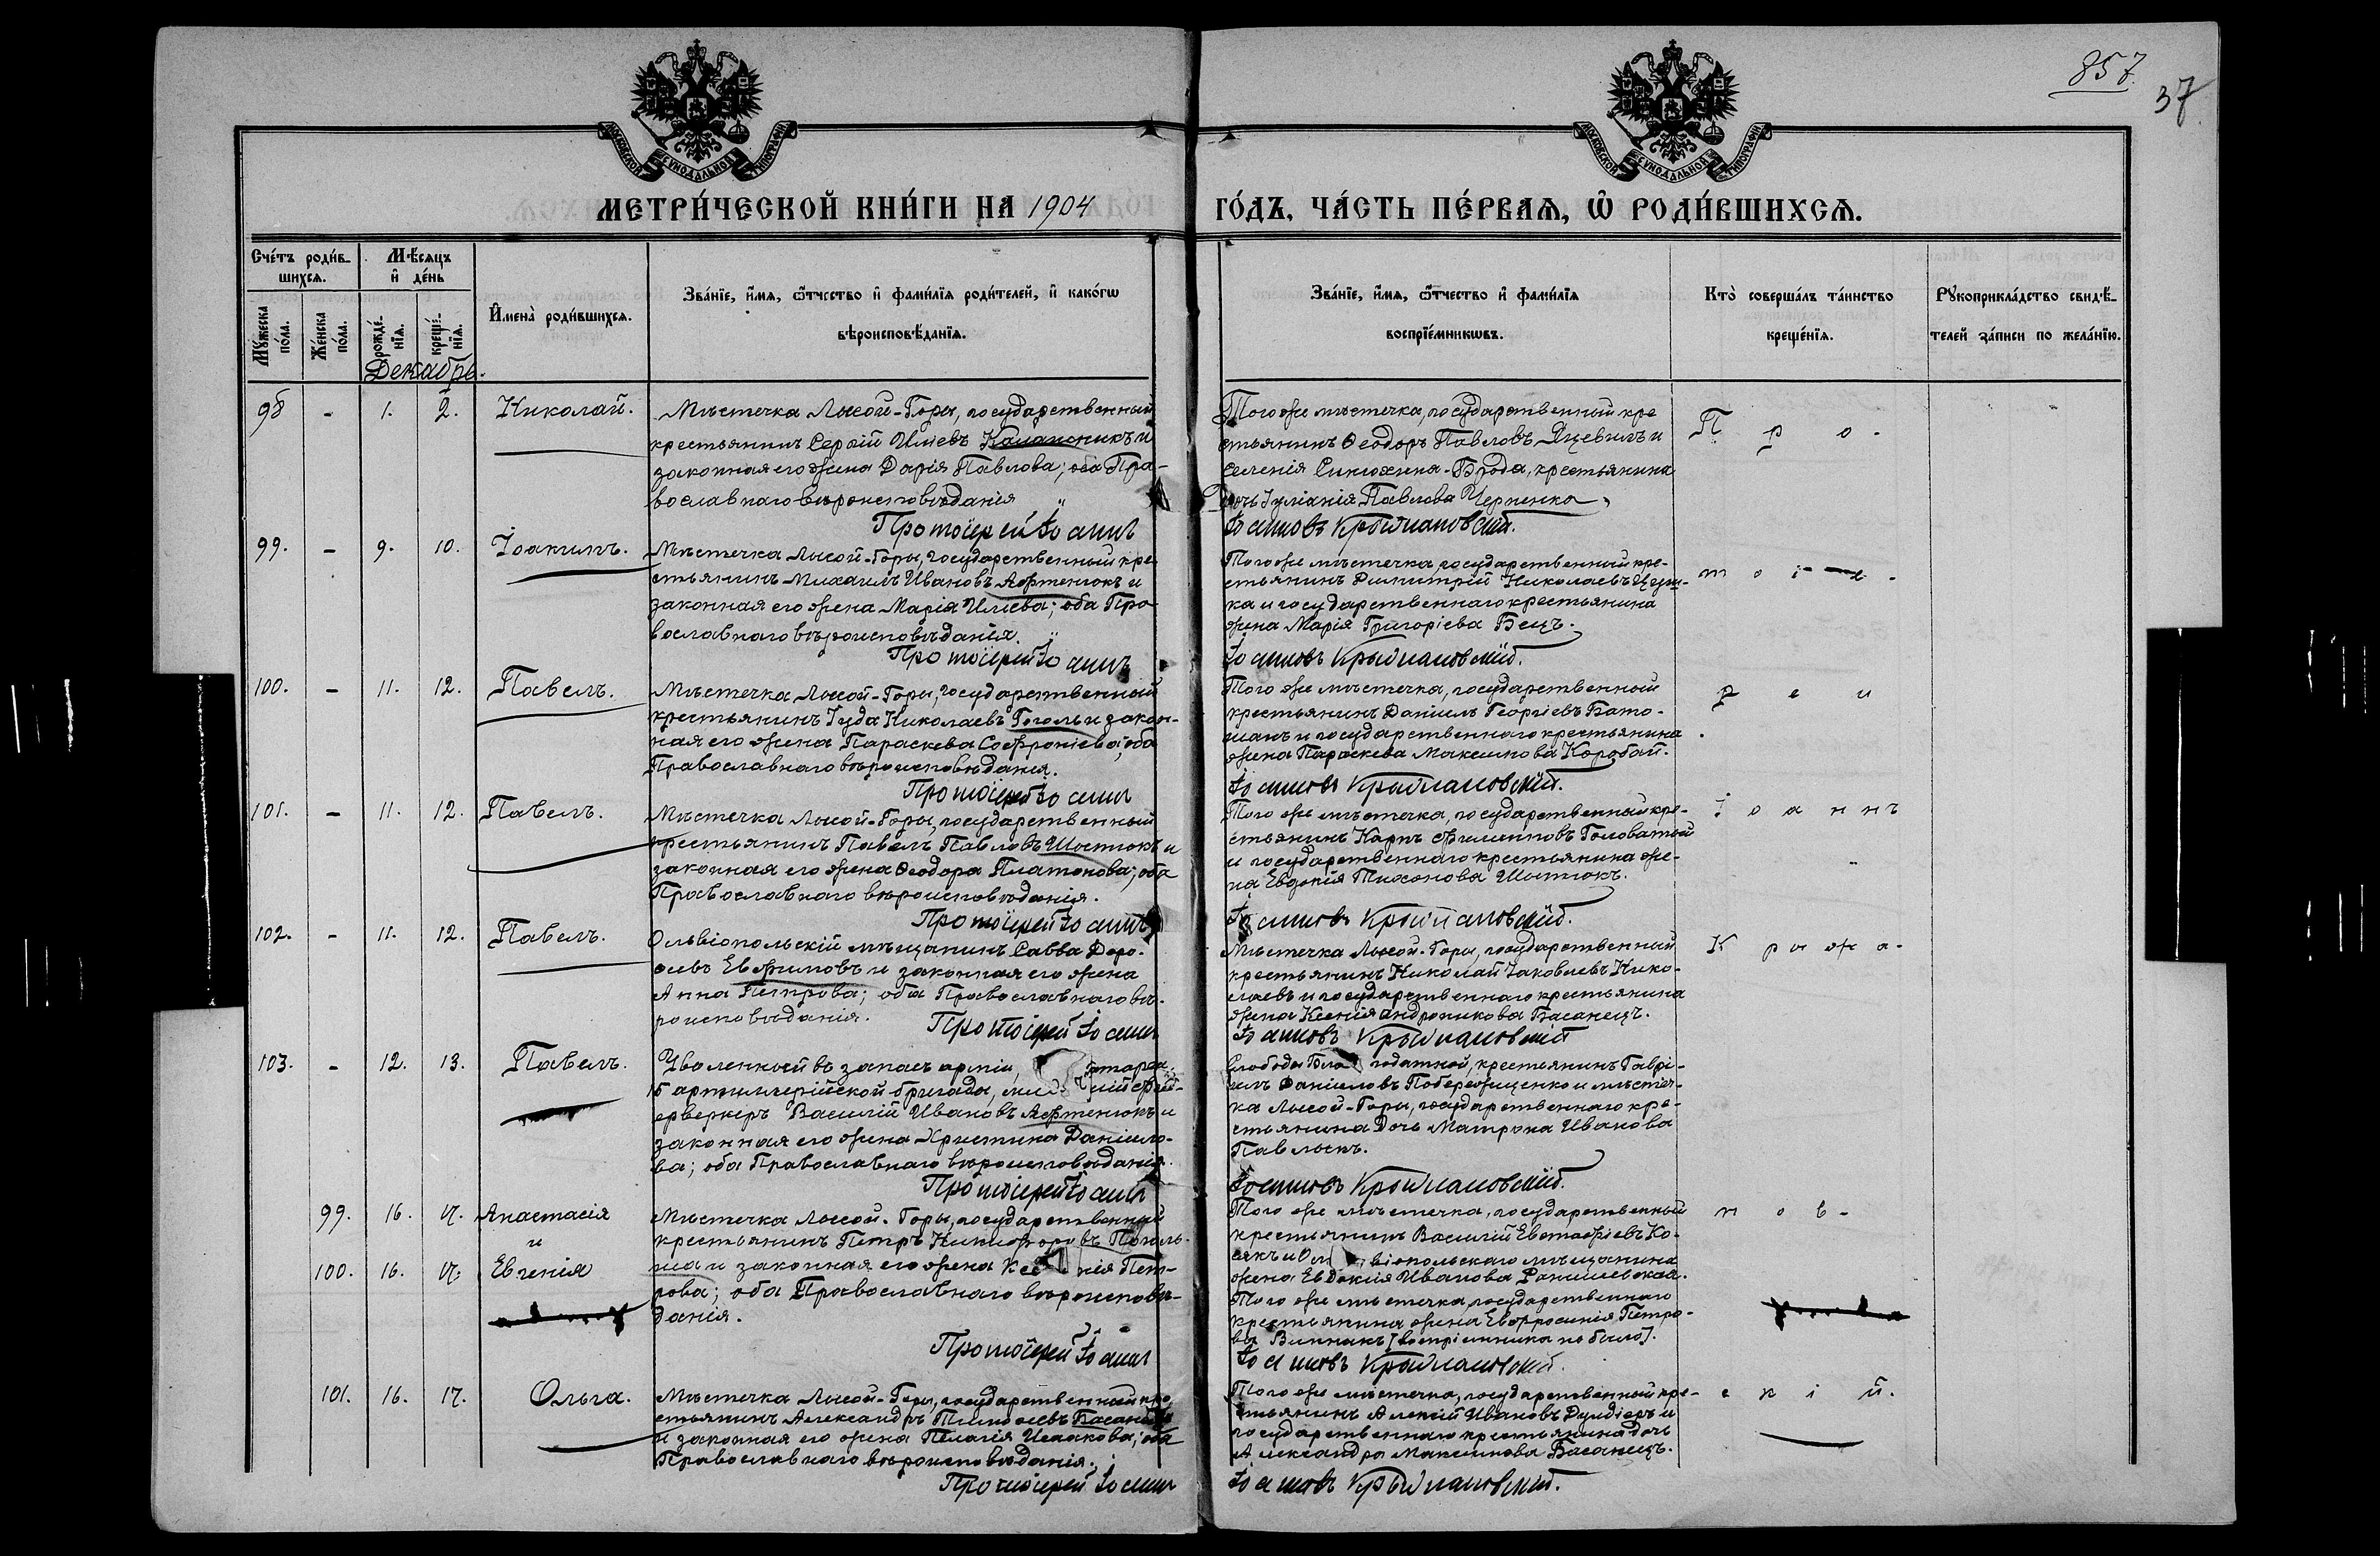 857.
37
МОСКОВСКОЙ СѴНОДАЛЬНОЙ ТИПОГРАФІИ
МОСКОВСКОЙ СѴНОДАЛЬНОЙ ТИПОГРАФІИ
МЕТРИ́ЧЕСКОЙ КНИ́ГИ НА 1904
ГО́ДЪ, ЧА́СТЬ ПЕ́РВАѦ, Ѡ҆ РОДИ́ВШИХСѦ.
Сче́тъ роди́в-
шихсѧ.
Мѣ́сяцъ
и҆ де́нь
Мꙋ́жеска
по́ла.
Же́нска
по́ла.
рожде́-
нїѧ.
креще́-
нїѧ.
И҆мена̀ роди́вшихсѧ.
Зва́нїе, и҆́мѧ, ѻ҆́тчество и҆ фами́лїѧ роди́телей, и҆ како́гѡ
вѣроисповѣ́данїѧ.
Зва́нїе, и҆́мѧ, ѻ҆́тчество и҆ фами́лїѧ
воспрїе́мникѡвъ.
Кто̀ соверша́лъ та́инство
креще́нїѧ.
Рꙋкоприкла́дство свидѣ́-
телей за́писи по жела́нїю.
Декабрь.
98 - 1. 2. Николай.
Мѣстечка Лысой-Горы, государственный
крестьянинъ Сергій Иліевъ и
законная его жена Дарія Павлова; оба Пра-
вославнаго вѣроисповѣданія
Протоіерей Іоаннъ
Того же мѣстечка, государственный кре
стьянинъ Ѳеодоръ Павловъ и
селенія Синюхина-Брода, крестьянина
дочь Іуліанія Павлова Черненко
Іоанновъ Крыжановскій.
Про-
99. - 9. 10. Іоакимъ.
Мѣстечка Лысой-Горы, государственный кре
стьянинъ Михаилъ Ивановъ Афтенюкъ и
законная его жена Марія Иліева; оба Пра
вославнаго вѣроисповѣданія.
Протоіерей Іоаннъ
Того же мѣстечка государственный кре-
стьянинъ Димитрій Николаевъ
ка и государственнаго крестьянина
жена Марія Григоріева Бецъ.
Іоанновъ Крыжановскій.
тоіе-
100. - 11. 12. Павелъ.
Мѣстечка Лысой-Горы, государственный
крестьянинъ Іуда Николаевъ Гоголь и закон-
ная его жена Параскева Софроніева; оба
Православнаго вѣроисповѣданія.
Протоіерей Іоаннъ
Того же мѣстечка, государственный
крестьянинъ Даніилъ Георгіевъ Бато-
шанъ и государственнаго крестьянина
жена Параскева Максимова Коробай.
Іоанновъ Крыжановскій.
рей
101. - 11. 12. Павелъ.
Мѣстечка Лысой-Горы, государственный
крестьянинъ Павелъ Павловъ Шостюкъ и
законная его жена Ѳеодора Платонова; оба
Православнаго вѣроисповѣданія.
Протоіерей Іоаннъ
Того же мѣстечка, государственный кре-
стьянинъ Карпъ Филипповъ Головатый
и государственнаго крестьянина же-
на Евдокія Тихонова Шостюкъ.
Іоанновъ Крыжановскій.
Іоаннъ
102. - 11. 12. Павелъ.
Ольвіопольскій мѣщанинъ Савва Доро-
ѳеевъ Евфимовъ и законная его жена
Анна Петрова; оба Православнаго вѣ-
роисповѣданія.
Протоіерей Іоаннъ
Мѣстечка Лысой-Горы, государственный
крестьянинъ Николай Іаковлевъ Нико-
лаевъ и государственнаго крестьянина
жена Ксенія Андроникова Басанецъ.
Іоанновъ Крыжановскій
Крыжа-
103. - 12. 13. Павелъ.
Уволенный въ запасъ арміи,
15 артиллерійской бригады, фей-
ерверкеръ Василій Ивановъ Афтенюкъ и
законная его жена Христина Даніило-
ва; оба Православнаго вѣроисповѣданія.
Протоіерей Іоаннъ
Слободы Благодатной, крестьянинъ Гаврі-
илъ Даніиловъ Побережниченко и мѣстеч-
ка Лысой-Горы, государственнаго кре-
стьянина дочь Матрона Иванова
Павлюкъ.
Іоанновъ Крыжановскій.
99. 16. 17. Анастасія
и
100. 16. 17. Евгенія
Мѣстечка Лысой-Горы, государственный
крестьянинъ Петръ Никифоровъ
и законная его жена Ксенія Пет-
рова; оба Православнаго вѣроисповѣ-
данія.
Протоіерей Іоаннъ
Того же мѣстечка, государственный
крестьянинъ Василій Евстафіевъ Ко-
сякъ и Ольвіопольскаго мѣщанина
жена Евдокія Иванова
Того же мѣстечка, государственнаго
крестьянина жена Евфросинія Петро-
ва Виннакъ [воспріемника не было].
Іоанновъ Крыжановскій.
нов-
101. 16. 17. Ольга.
Мѣстечка Лысой-Горы, государственный кре
стьянинъ Александръ Тимоѳеевъ Басанецъ
и законная его жена Пелагія Исаакова; оба
Православнаго вѣроисповѣданія.
Протоіерей Іоаннъ
Того же мѣстечка, государственный кре-
стьянинъ Алексій Ивановъ и
государственнаго крестьянина дочь
Александра Максимова Басанецъ.
Іоанновъ Крыжановскій.
скій.